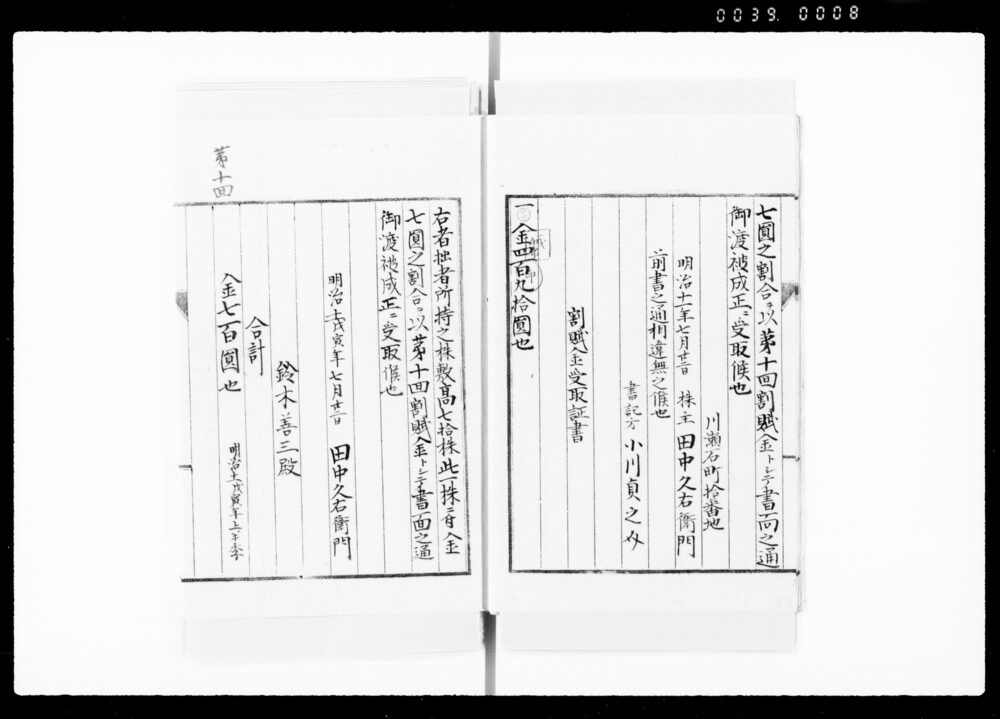 0039. 0008
七圓之割合ヲ以第十回割賦金トシテ書面之通
御渡被成正ニ受取候也
川瀬石町拾番地
明治十一年七月廿三日 株主 田中久右衞門
前書之通相違無之候也
書記方 小川貞之
割賦金受取証書
一金四百九拾圓也
右者拙者所持之株敷髙七拾株此一株ニ付金
七圓之割合ヲ以第十回割賦金トシテ書面之通
御渡被成正ニ受取候也
明治十一戊寅年七月廿三日 田中久右衞門
鈴木善三殿
合計
金七百圓也 明治十一戊寅年上半季
第十回